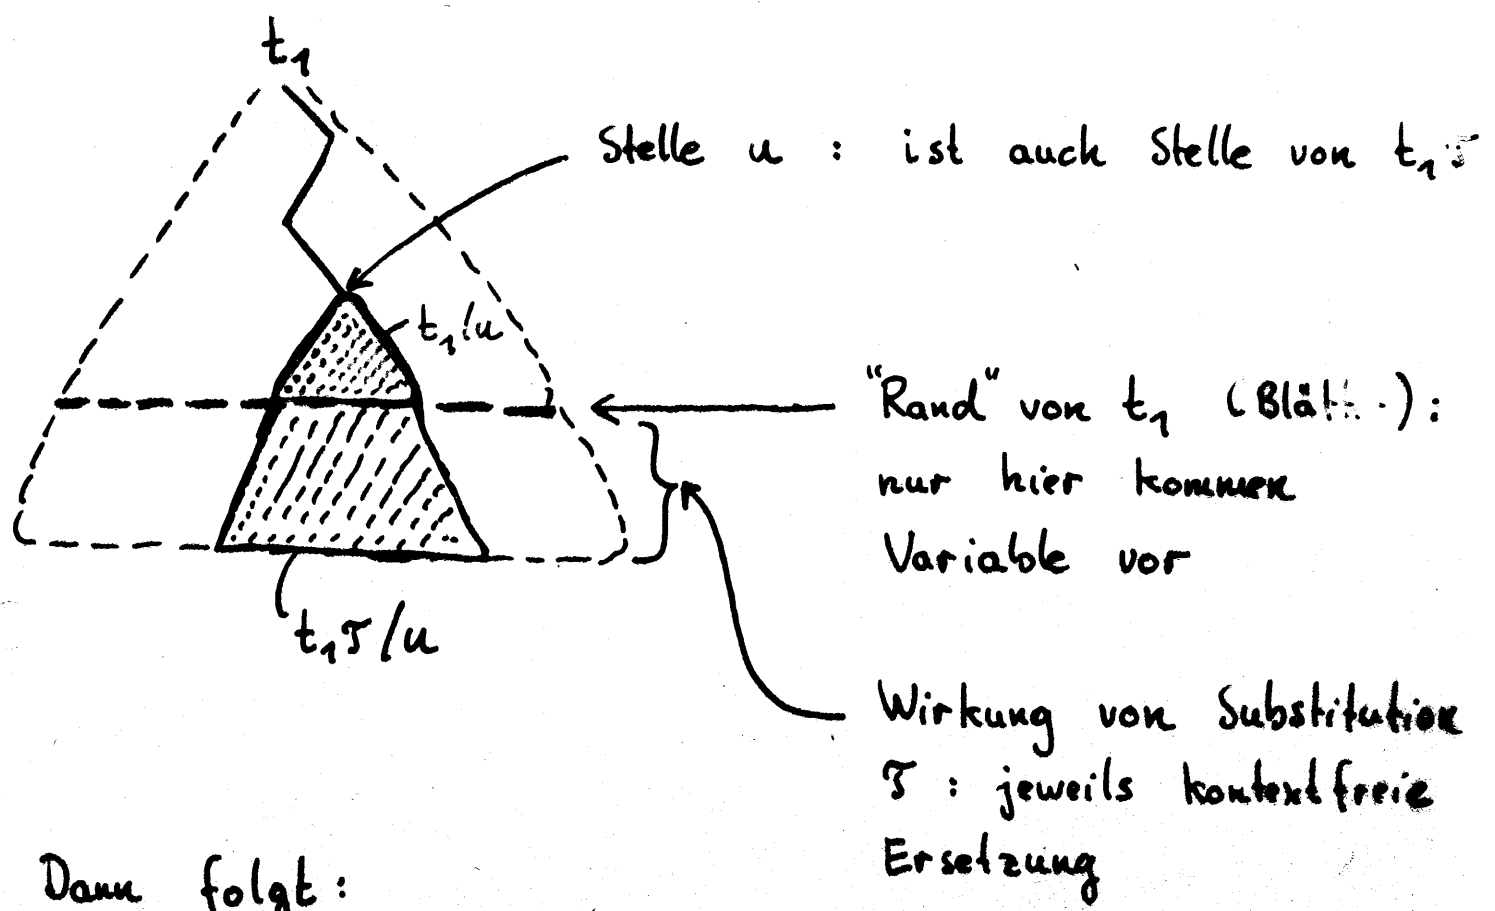 t₁
Stelle u : ist auch Stelle von t₁
t₁/u
"Rand" von t₁
nur hier kommen
Variable vor
t₁𝒯/u
Wirkung von Substitution
𝒯 : jeweils kontextfreie
Ersetzung
Dann folgt :